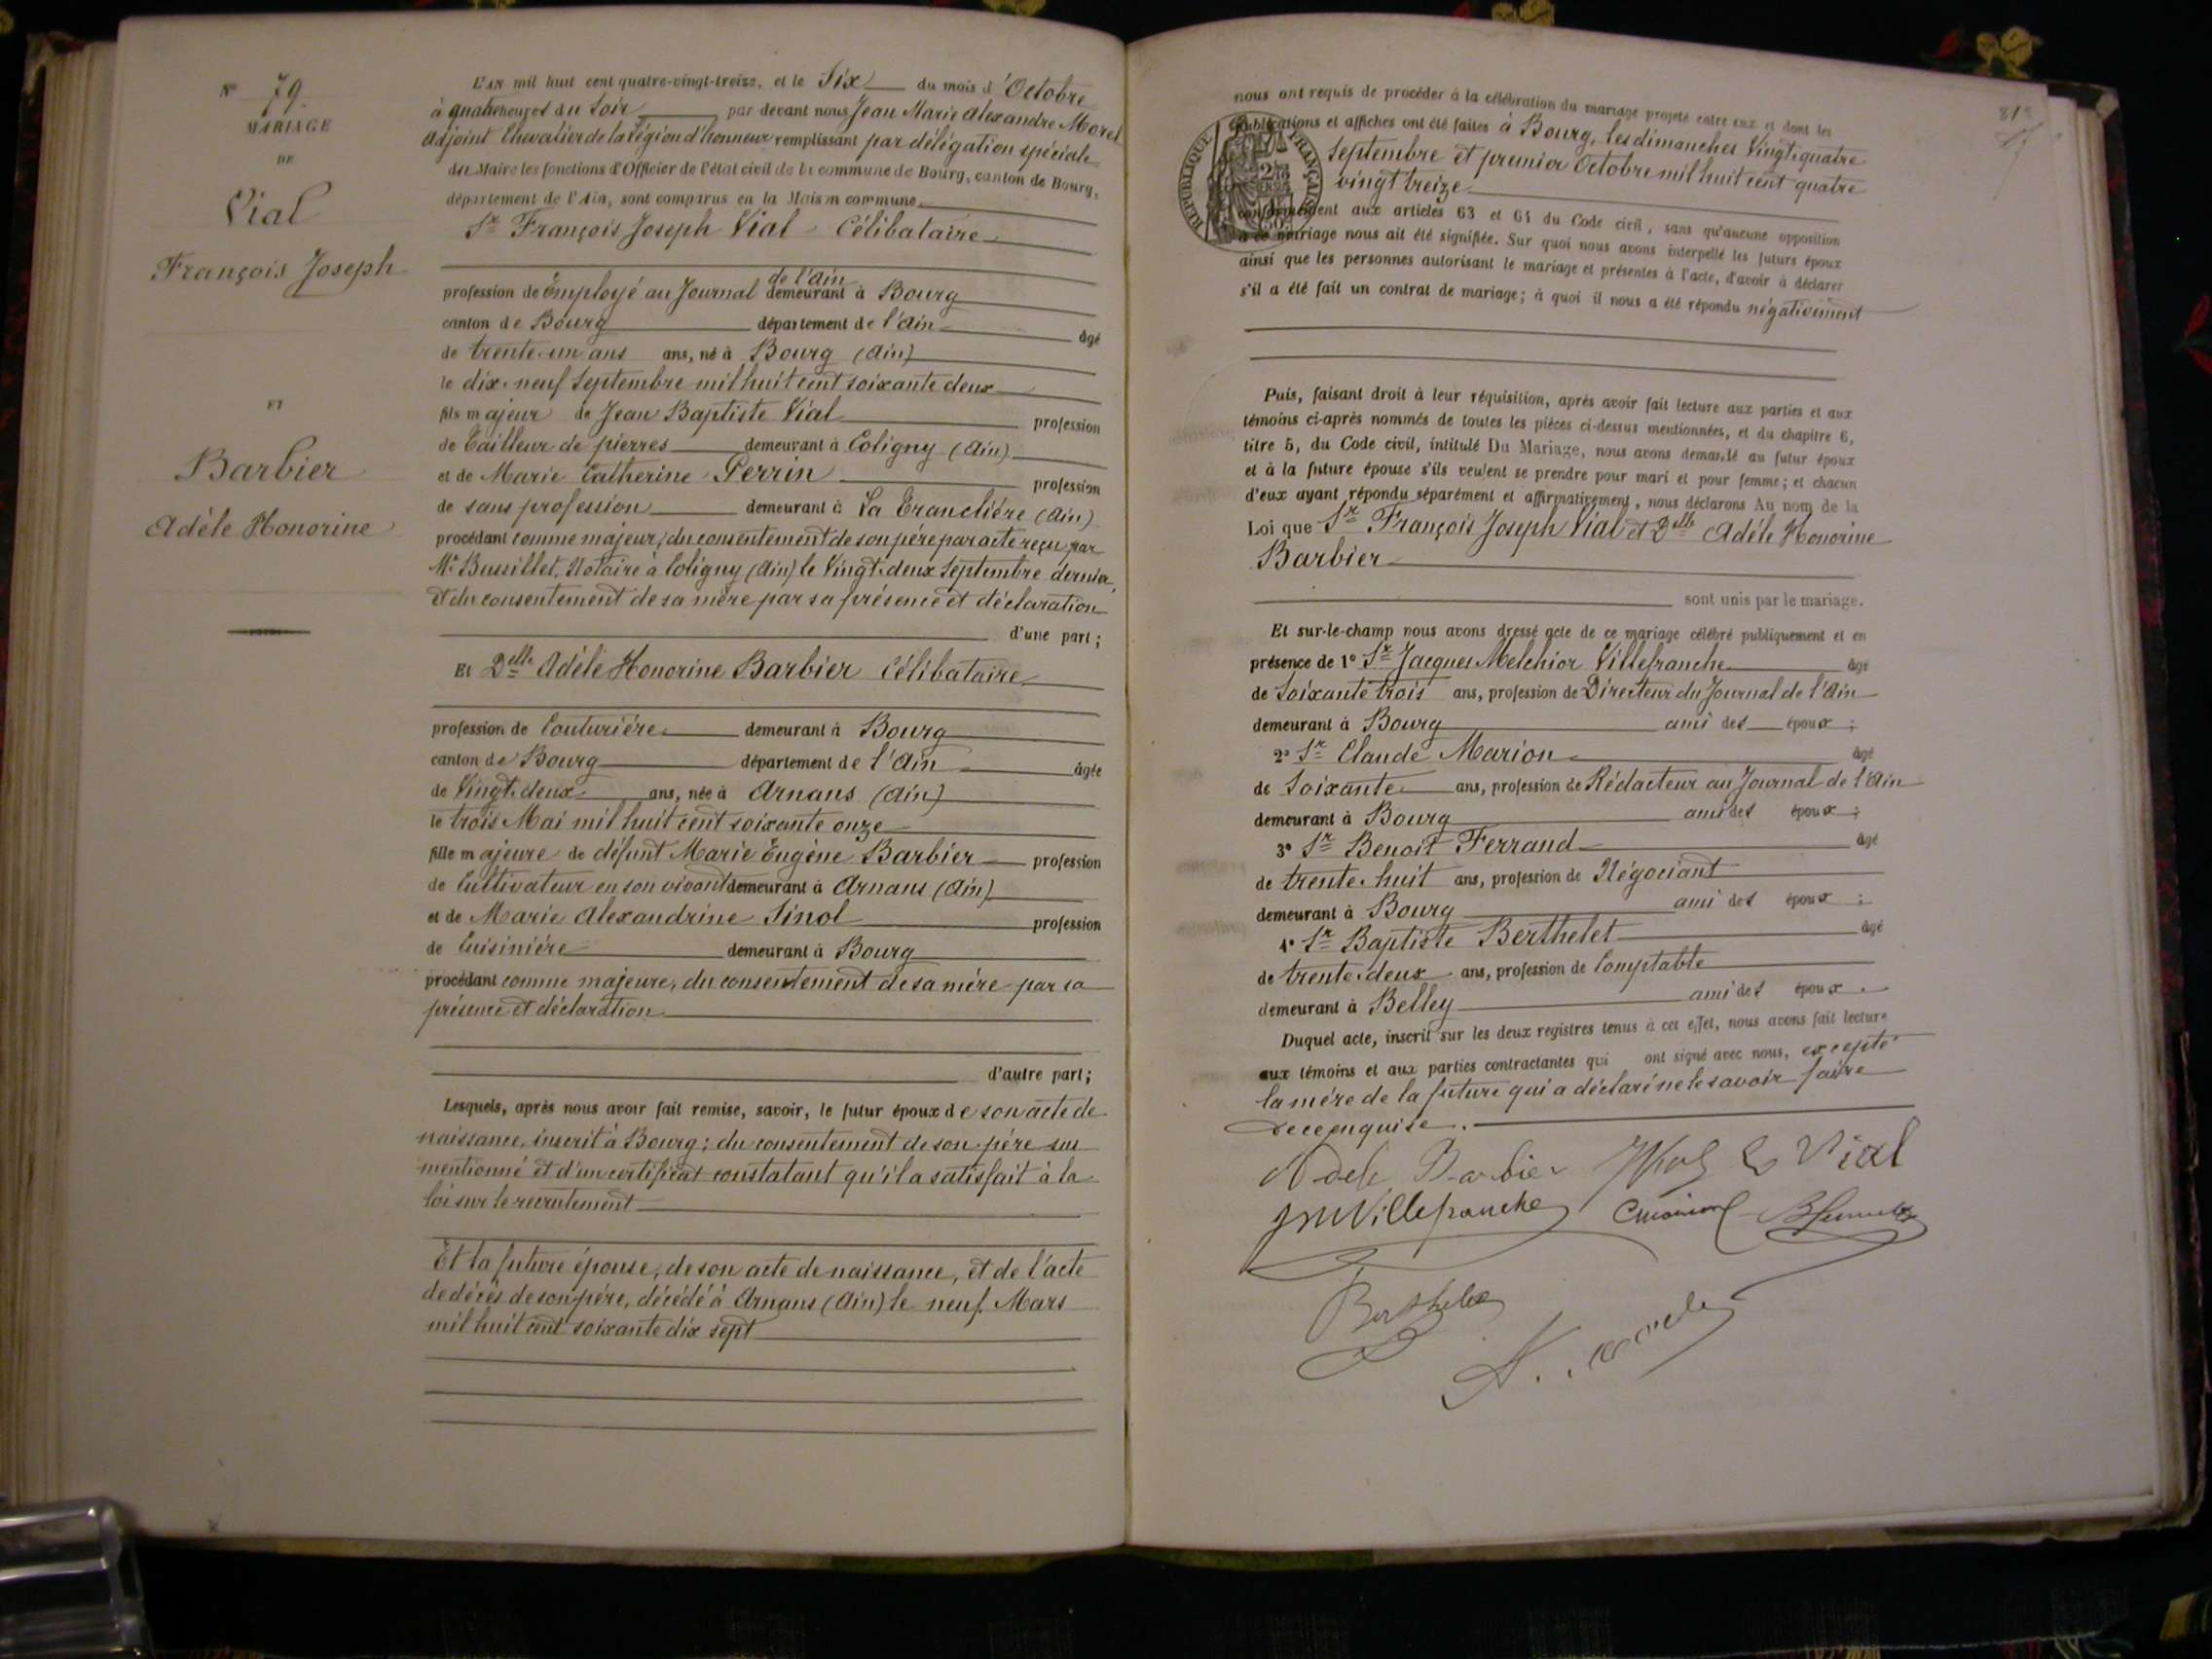 N° 79.
MARIAGE
DE
Vial
François Joseph
ET
Barbier
Adèle Honorine
L'AN mil huit cent quatre-vingt-treize, et le Six du mois d'Octobre
à quatre heures du Soir par devant nous Jean Marie Alexandre Morel
Adjoint Chevalier de la Légion d'honneur remplissant par délégation spéciale
du Maire les fonctions d'Officier de l'état civil de la commune de Bourg, canton de Bourg,
département de l'Ain, sont comparus en la Maison commune
Sr François Joseph Vial Célibataire
de l'Ain
profession de Employé au Journal demeurant à Bourg
canton de Bourg département de l'Ain âgé
de trente-un ans ans, né à Bourg (Ain)
le dix-neuf Septembre mil huit cent soixante deux
fils majeur de Jean Baptiste Vial profession
de Tailleur de pierres demeurant à Coligny (Ain)
et de Marie Catherine Perrin profession
de sans profession demeurant à La Tranclière (Ain)
procédant comme majeur, du consentement de son père par acte reçu par
Me Bussillet, Notaire à Coligny (Ain) le Vingt-deux Septembre dernier,
et du consentement de sa mère par sa présence et déclaration
d'une part ;
Et Delle Adèle Honorine Barbier Célibataire
profession de Couturière demeurant à Bourg
canton de Bourg département de l'Ain âgée
de Vingt-deux ans, née à Arnans (Ain)
le trois Mai mil huit cent soixante onze
fille majeure de défunt Marie Eugène Barbier profession
de Cultivateur en son vivant demeurant à Arnans (Ain)
et de Marie Alexandrine Sinol profession
de Cuisinière demeurant à Bourg
procédant comme majeure, du consentement de sa mère par sa
présence et déclaration
d'autre part ;
Lesquels, après nous avoir fait remise, savoir, le futur époux de son acte de
naissance, inscrit à Bourg ; du consentement de son père sus
mentionné et d'un certificat constatant qu'il a satisfait à la
loi sur le recrutement
Et la future épouse, de son acte de naissance, et de l'acte
de décès de son père, décédé à Arnans (Ain) le neuf Mars
mil huit cent soixante dix sept
81
nous ont requis de procéder à la célébration du mariage projeté entre eux et dont les
publications et affiches ont été faites à Bourg, les dimanches Vingt-quatre
Septembre et premier Octobre mil huit cent quatre
vingt treize
REPUBLIQUE FRANÇAISE
conformément aux articles 63 et 64 du Code civil, sans qu'aucune opposition
à ce mariage nous ait été signifiée. Sur quoi nous avons interpellé les futurs époux
ainsi que les personnes autorisant le mariage et présentes à l'acte, d'avoir à déclarer
s'il a été fait un contrat de mariage ; à quoi il nous a été répondu négativement
Puis, faisant droit à leur réquisition, après avoir fait lecture aux parties et aux
témoins ci-après nommés de toutes les pièces ci-dessus mentionnées, et du chapitre 6,
titre 5, du Code civil, intitulé Du Mariage, nous avons demandé au futur époux
et à la future épouse s'ils veulent se prendre pour mari et pour femme ; et chacun
d'eux ayant répondu séparément et affirmativement, nous déclarons Au nom de la
Loi que Sr François Joseph Vial et Delle Adèle Honorine
Barbier
sont unis par le mariage.
Et sur-le-champ nous avons dressé acte de ce mariage célébré publiquement et en
présence de 1° Sr Jacques Melchior Villefranche âgé
de Soixante trois ans, profession de Directeur du Journal de l'Ain
demeurant à Bourg ami des époux ;
2° Sr Claude Marion âgé
de Soixante ans, profession de Rédacteur au Journal de l'Ain
demeurant à Bourg ami des époux ;
3° Sr Benoit Ferrand âgé
de trente-huit ans, profession de Négociant
demeurant à Bourg ami des époux ;
4° Sr Baptiste Berthelet âgé
de trente-deux ans, profession de Comptable
demeurant à Belley ami des époux.
Duquel acte, inscrit sur les deux registres tenus à cet effet, nous avons fait lecture
aux témoins et aux parties contractantes qui ont signé avec nous, excepté
la mère de la future qui a déclaré ne le savoir faire
de ce enquise.
Adele Barbier Vial
JM Villefranche CMarion
Berthelet